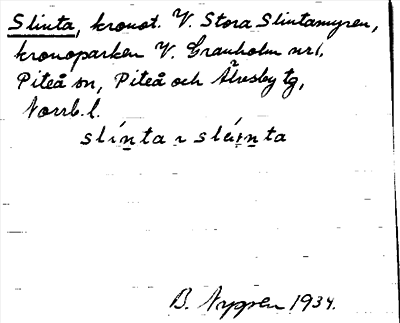 Slinta, kronot. V. Stora Slintamyren,
kronoparken V. Granholm nr 1,
Piteå sn, Piteå och Älvsby tg,
Norrb. l.
slínta ~ sléınta
B. Nygren 1934.